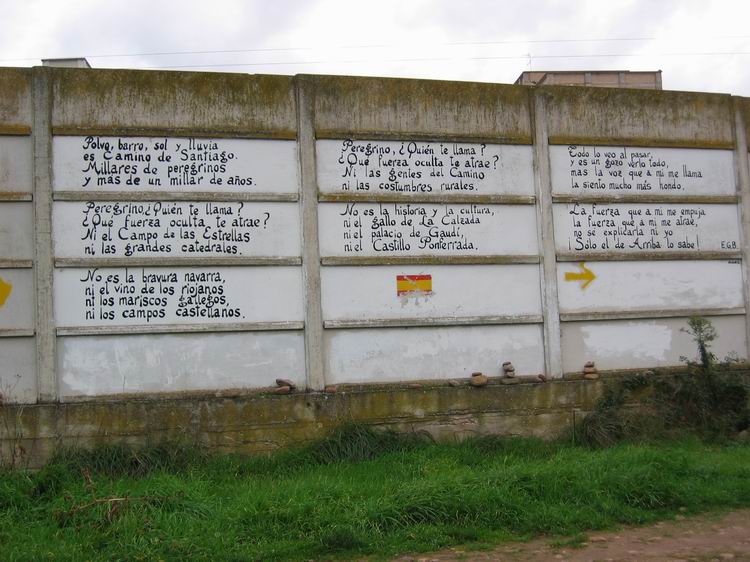 Polvo, barro, sol y lluvia
es Camino de Santiago.
Millares de peregrinos
y más de un millar de años.
Peregrino, ¿Quién te llama?
¿Qué fuerza oculta te atrae?
Ni el Campo de las Estrellas
ni las grandes catedrales.
No es la bravura navarra,
ni el vino de los riojanos
ni los mariscos gallegos,
ni los campos castellanos.
Peregrino, ¿Quién te llama?
¿Qué fuerza oculta te atrae?
Ni las gentes del Camino
ni las costumbres rurales.
No es la historia y la cultura,
ni el gallo de La Calzada
ni el palacio de Gaudí,
ni el Castillo Ponferrada.
Todo lo veo al pasar,
y es un gozo verlo todo,
mas la voz que a mi me llama
la siento mucho más hondo.
La fuerza que a mi me empuja
la fuerza que a mi me atrae,
no se explicarla ni yo
¡Solo el de Arriba lo sabe! E.G.B.